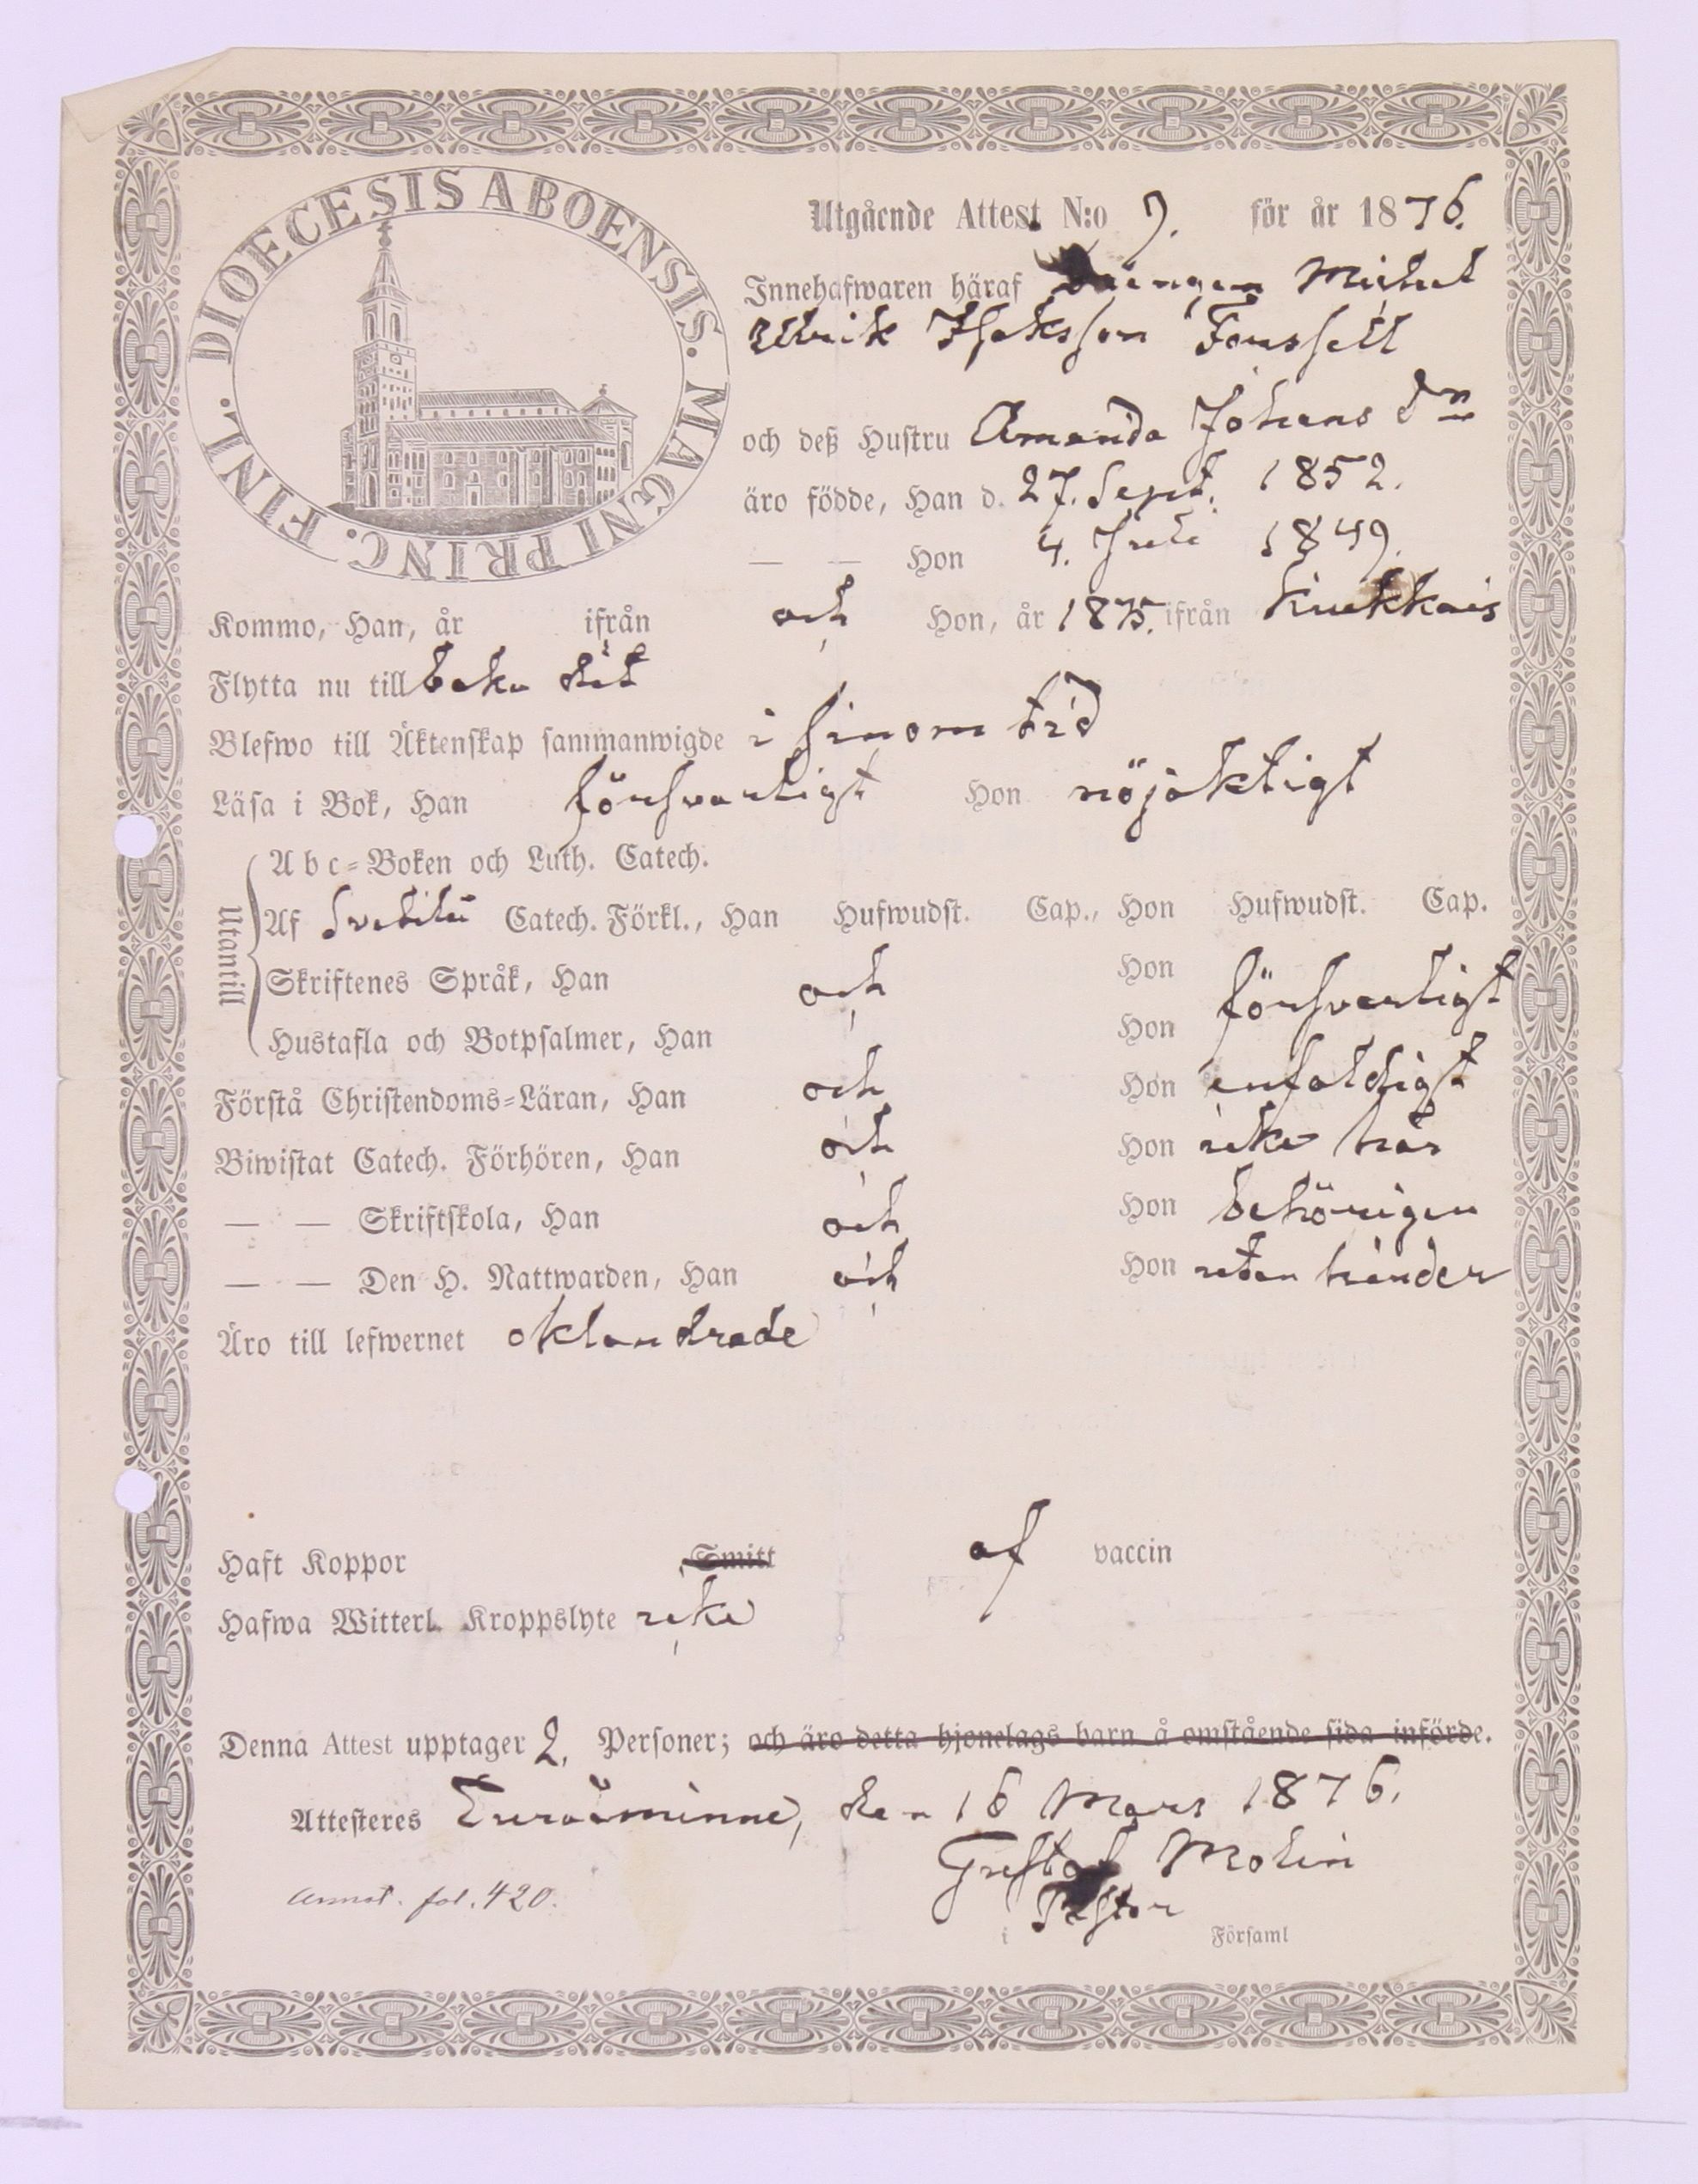 DIOECESIS ABOENSIS. MAGNI PRINC. FINL.
Utgående Attest N:o 9. för år 1876.
Innehafwaren häraf Drengen Michel
Ulrik Isaksson Forssell
och deß Hustru Amanda Johans dn
äro födde, Han d. 27. Sept. 1852.
— — Hon 4. 1849.
Kommo, Han, år ifrån och Hon, år 1875. ifrån Kiukkais
Flytta nu till baka dit
Blefwo till Äktenskap sammanwigde i sinom tid
Läsa i Bok, Han försvarligt Hon nöjaktigt
Utantill
Abc-Boken och Luth. Catech.
Af Svebilii Catech. Förkl., Han Hufwudst. Cap., Hon Hufwudst. Cap.
Skriftenes Språk, Han och Hon försvarligt
Hustafla och Botpsalmer, Han Hon
Förstå Christendoms-Läran, Han och Hon enfaldigt
Biwistat Catech. Förhören, Han och Hon icke här
— — Skriftskola, Han och Hon behörigen
— — Den H. Nattwarden, Han och Hon utan hinder
Äro till lefwernet oklandrade
Haft Koppor Smitt af vaccin
Hafwa Witterl. Kroppslyte icke
Denna Attest upptager 2. Personer; och äro detta hjonelags barn å omstående sida införde.
Attesteres Euraåminne, den 16 Mars 1876.
Gustaf Molin
Annot. fol. 420.
i Pastor Församl